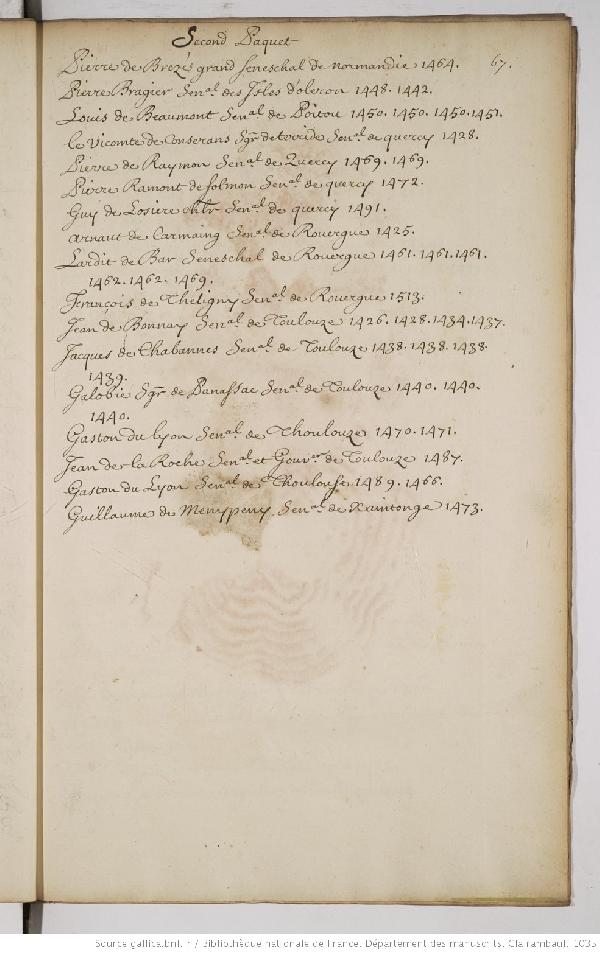 Second Paquet
67.
Pierre de Brezé grand seneschal de normandie 1464.
Pierre Bragier Sen.al des Isles d'oleron 1448. 1442.
Louis de Beaumont Sen.al de Poitou 1450. 1450. 1450. 1451.
le Vicomte de Conserans Sgr. de terride Sen.al de quercy 1428.
Pierre de Raymon Sen.al de Quercy 1469. 1469.
Pierre Ramont de folmon Sen.al de quercy 1472.
Guy de Losiere chlr Sen.al de quercy 1491.
arnaut de Carmaing Sen.al de Rouergue 1425.
Lardit de Bar Seneschal de Rouergue 1461. 1461. 1461.
1462. 1462. 1469.
François de Theligny Sen.al de Rouergue 1513.
Jean de Bonnay Sen.al de Toulouze 1426. 1428. 1434. 1437.
Jacques de Chabannes Sen.al de Toulouze 1438. 1438. 1438.
1439.
Galobie Sgr. de Panassac Sen.al de Toulouze 1440. 1440.
1440.
Gaston du lyon Sen.al de Thoulouze 1470. 1471.
Jean de la Roche Sen.al et Gouv.r de Toulouze 1487.
Gaston du Lyon Sen.al de Thoulouse 1489. 1466.
Guillaume de Menypeny Sen.al de Xaintonge 1473.
Source gallica.bnf.fr / Bibliothèque nationale de France. Département des manuscrits. Clairambault 1035